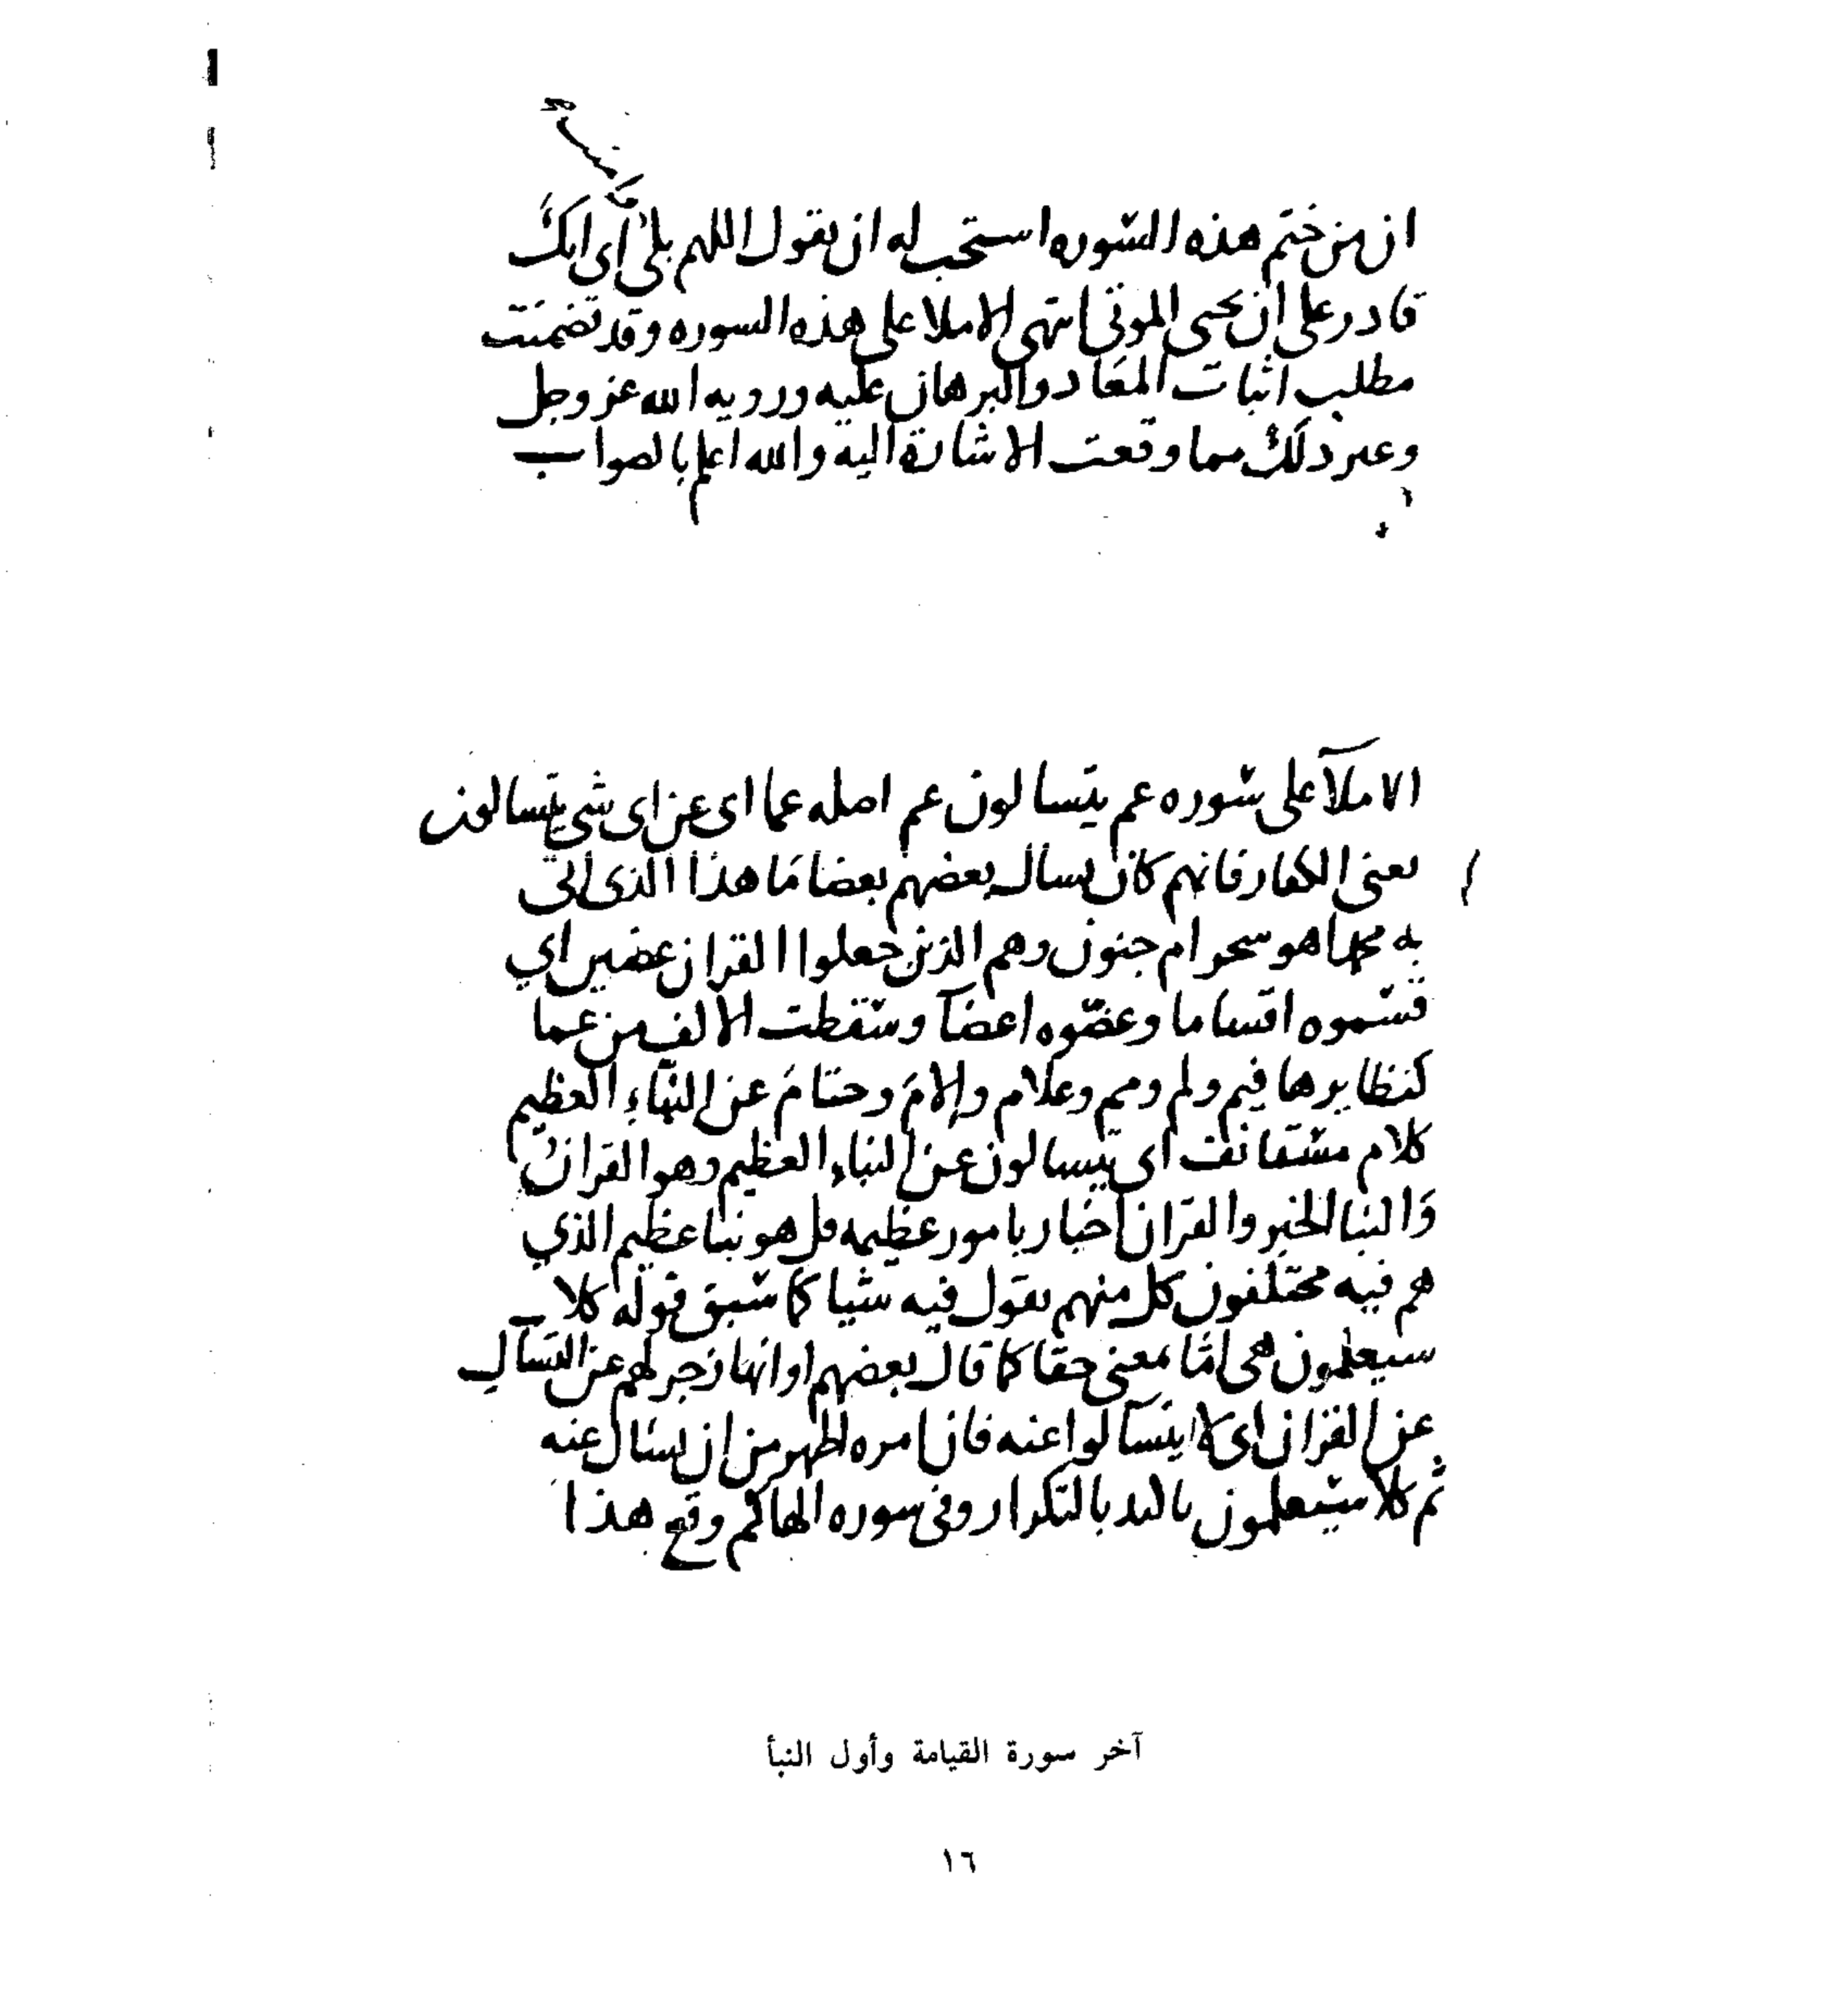 ان من ختم هذه السوره استحب له ان يقول اللهم بلى اى انك
قادر على ان يحيى الموتى انتهى الاملا على هذه السوره وقد تضمنت
مطلب اثبات المعاد والبرهان عليه ورويه الله عز وجل
وغير ذلك مما وقعت الاشارة اليه والله اعلم بالصواب
الاملآ على سوره عم يتسالون عم اصله عما اى عن اى شى يتسالون
يعنى الكفار فانهم كان يسال بعضهم بعضا ما هذا الذى اتى
به محمد اهو سحر ام جنون وهم الذين جعلوا القران عضين اي
قسموه اقساما وعضوه اعضآ وسقطت الالف من عما
كنظايرها فيم ولم ومم وعلام وإلامَ وحتامَ عن النبّاءِ العظيم
كلام مستانف اى يتسالون عن النباء العظيم وهو القران
وَالنبا الخبر والقران اخبار بامور عظيمه قل هو نبا عظيم الذي
هم فيه مختلفون كل منهم يقول فيه شيا كما سبق قوله كلا
سيعلمون هى امّا بمعنى حقا كما قال بعضهم او انها زجر لهم عن التسآل
عن القران اى لا يتسآلوا عنه فان امره اظهر من ان يسال عنه
ثم كلا سيعلمون بالتكرار وفى سوره الهاكم وقع هذا
آخر سورة القيامة وأول النبأ
١٦